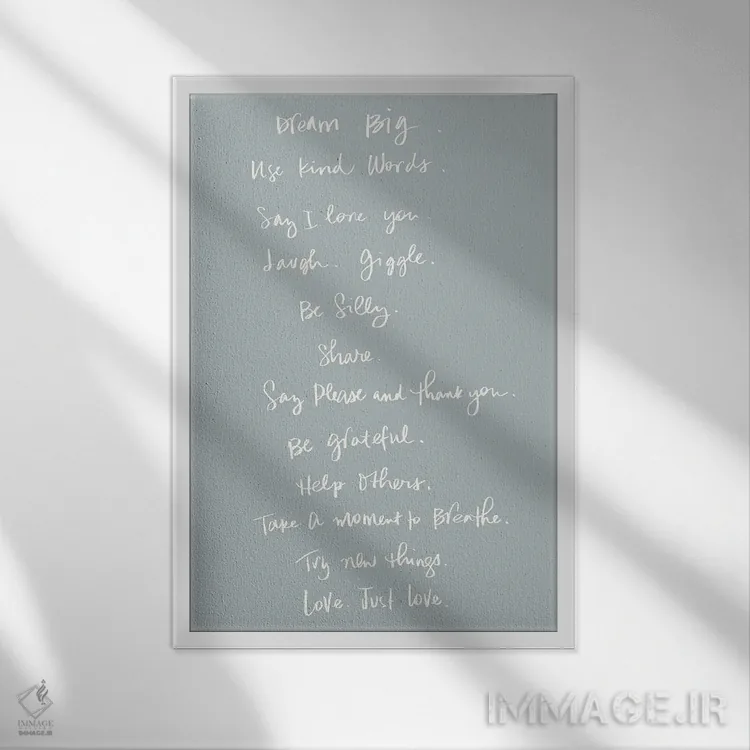 Dream Big .
Use kind Words .
Say I love you
Laugh. Giggle.
Be Silly.
Share.
Say Please and thank you.
Be grateful.
Help Others.
Take a moment to Breathe.
Try new things.
Love. Just love.
IMMAGE
IMMAGE.IR